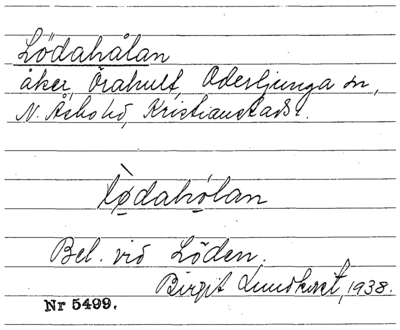 Lödahålan
åker, Örahult, Oderljunga sn,
N. Åsbo hd, Kristianstads l.
lødahólan
Bel. vid Löden.
Birgit Lundkvist, 1938.
Nr 5499.